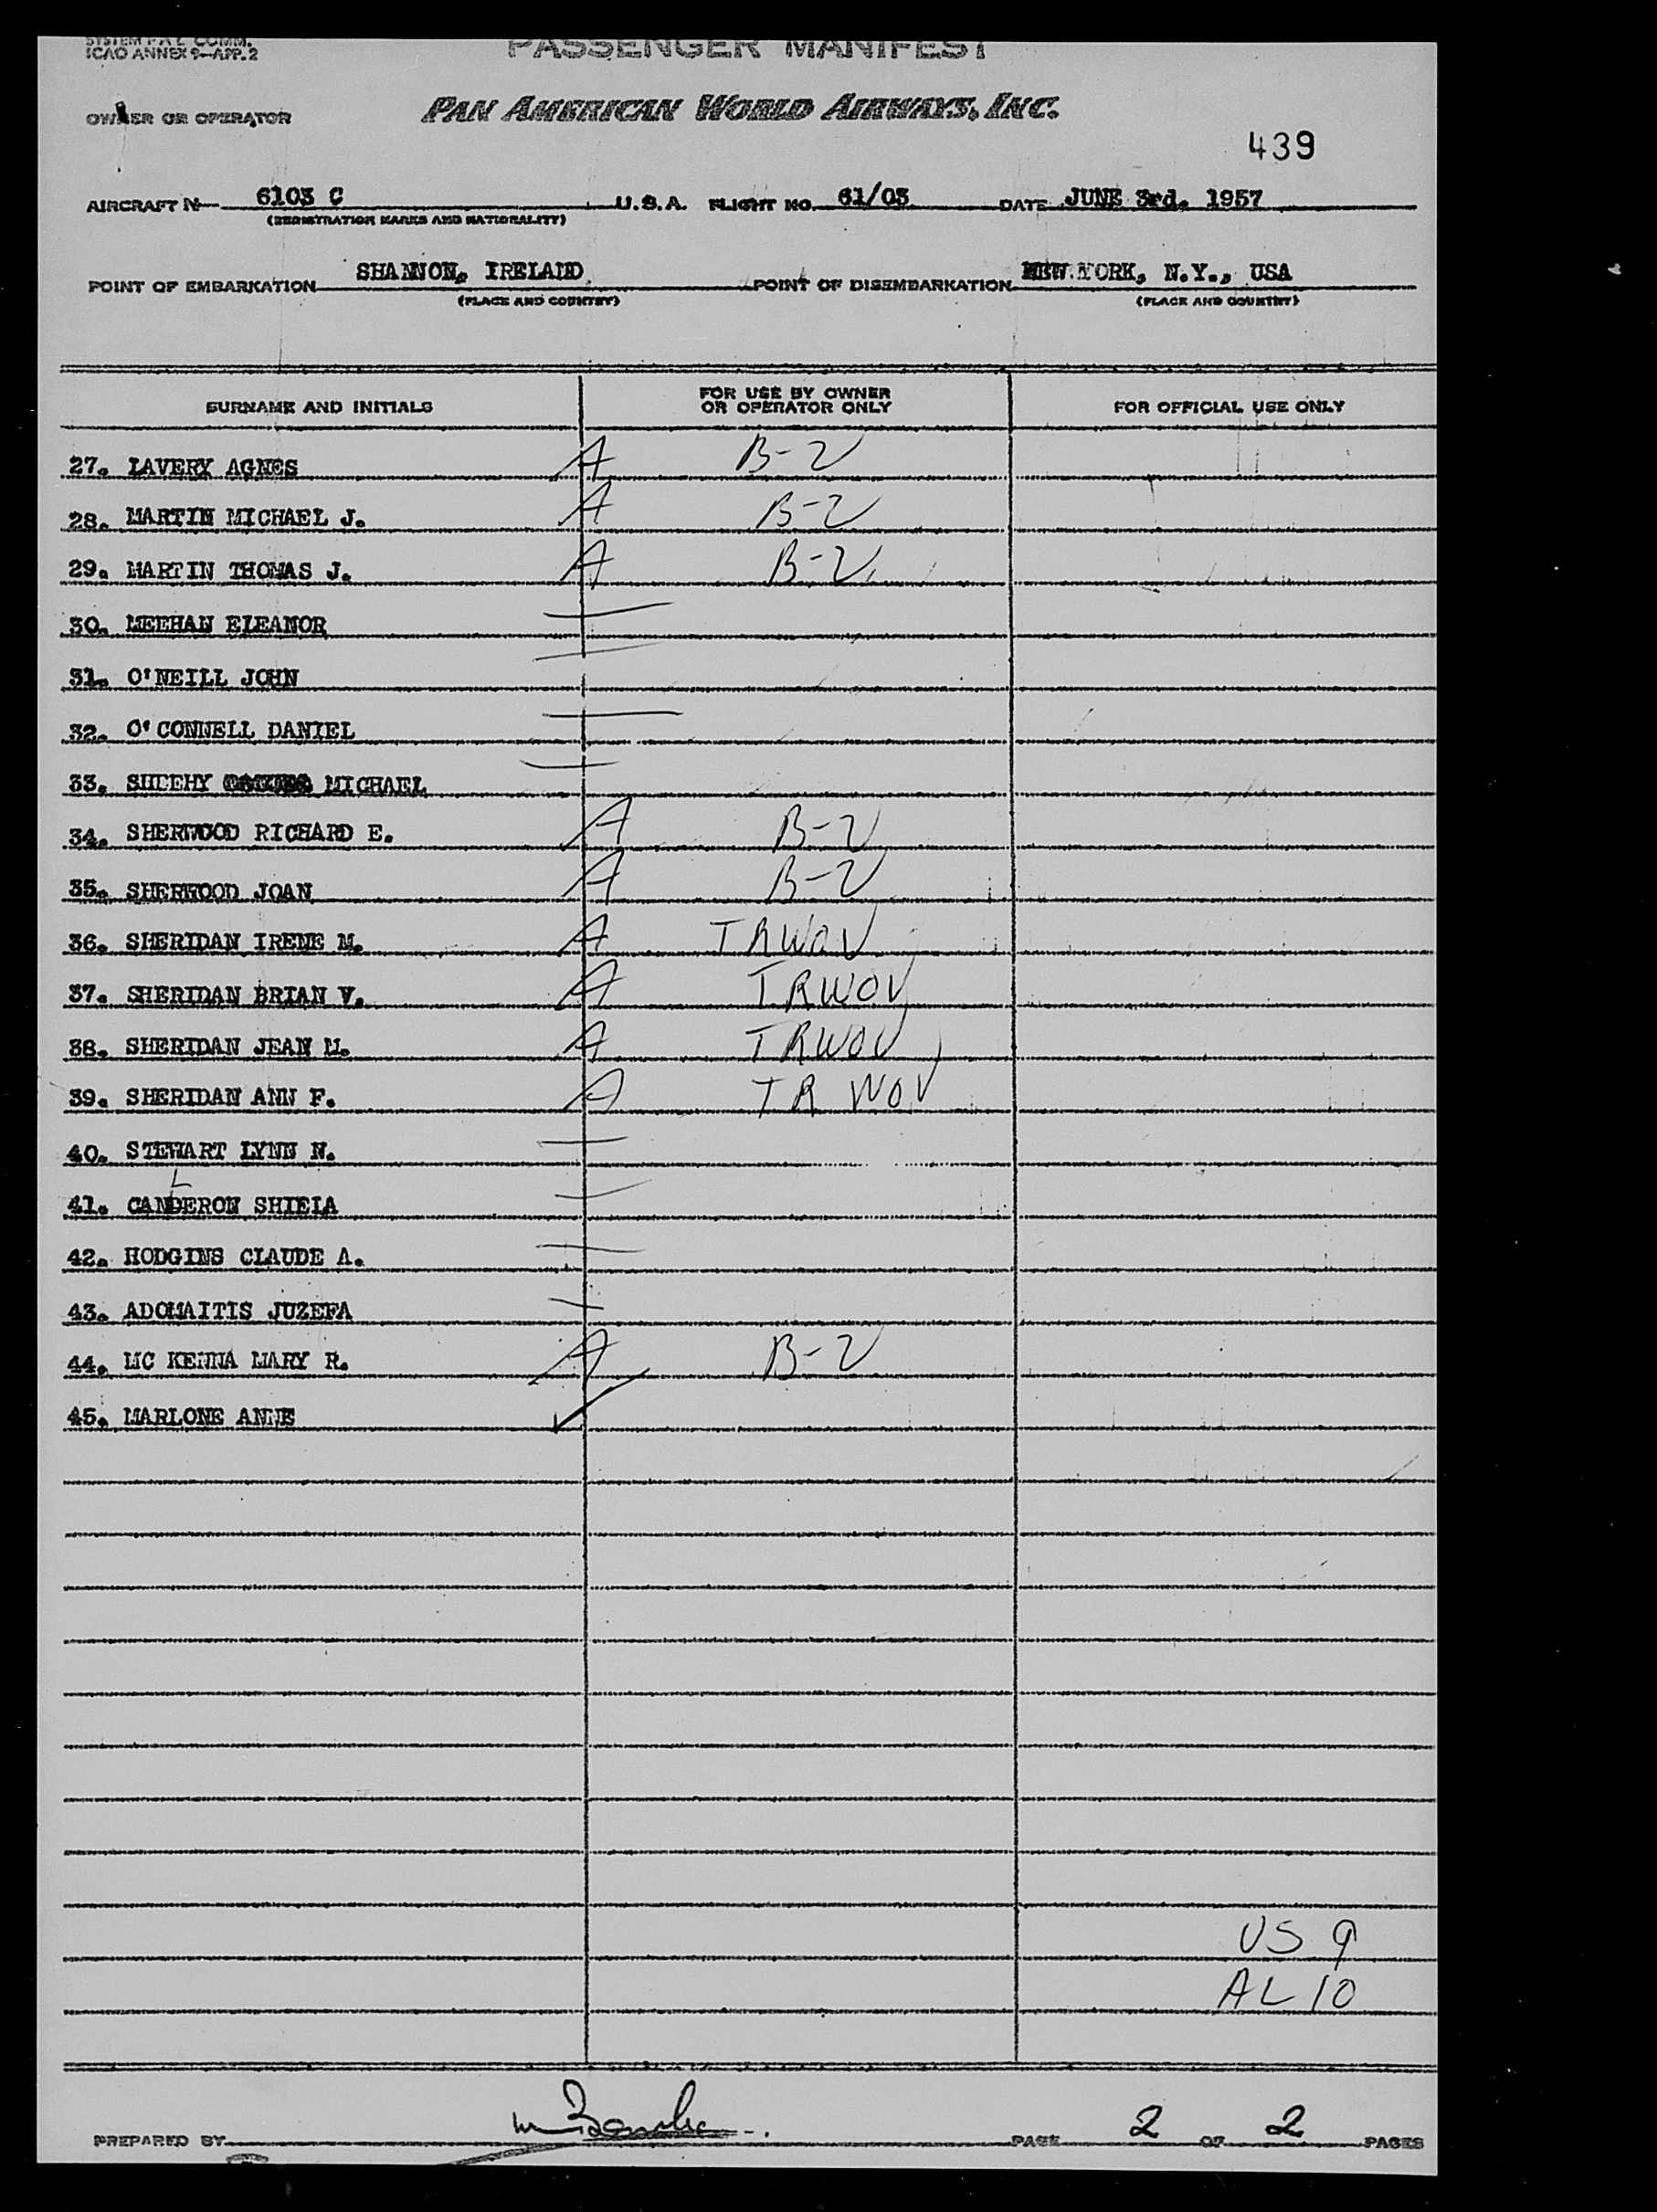 SYSTEM P A L COMM.
ICAO ANNEX 9—APP. 2
PASSENGER MANIFEST
OWNER OR OPERATOR PAN AMERICAN WORLD AIRWAYS, INC.
439
AIRCRAFT N— 6103 C U.S.A. FLIGHT NO. 61/03 DATE JUNE 3rd. 1957
(REGISTRATION MARKS AND NATIONALITY)
POINT OF EMBARKATION SHANNON, IRELAND POINT OF DISEMBARKATION NEW YORK, N.Y., USA
(PLACE AND COUNTRY) (PLACE AND COUNTRY)
SURNAME AND INITIALS FOR USE BY OWNER OR OPERATOR ONLY FOR OFFICIAL USE ONLY
27. LAVERY AGNES A B-2
28. MARTIN MICHAEL J. A B-2
29. MARTIN THOMAS J. A B-2
30. MEEHAN ELEANOR
31. O'NEILL JOHN
32. O'CONNELL DANIEL
33. SHEEHY MICHAEL
34. SHERWOOD RICHARD E. A B-2
35. SHERWOOD JOAN A B-2
36. SHERIDAN IRENE M. A TRWOV
37. SHERIDAN BRIAN V. A TRWOV
38. SHERIDAN JEAN M. A TRWOV
39. SHERIDAN ANN F. A TR WOV
40. STEWART LYNN N.
41. CANDERON SHIEIA
L
42. HODGINS CLAUDE A.
43. ADOMAITIS JUZEFA
44. MC KENNA MARY R. A B-2
45. MARLONE ANNE
US 9
AL 10
PREPARED BY PAGE 2 OF 2 PAGES